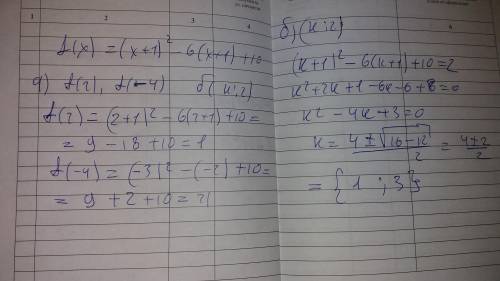 1 2 3 4
f(x) = (x+1)² - 6(x+1) + 10
а) f(2), f(-4) б(k;2)
f(2) = (2+1)² - 6(2+1) + 10 =
= 9 - 18 + 10 = 1
f(-4) = (-3)² - (-2) + 10 =
= 9 + 2 + 10 = 21
б) (k;2)
(k+1)² - 6(k+1) + 10 = 2
k² + 2k + 1 - 6k - 6 + 8 = 0
k² - 4k + 3 = 0
k = 4 ± √16-12 / 2 = 4±2 / 2
= {1; 3}